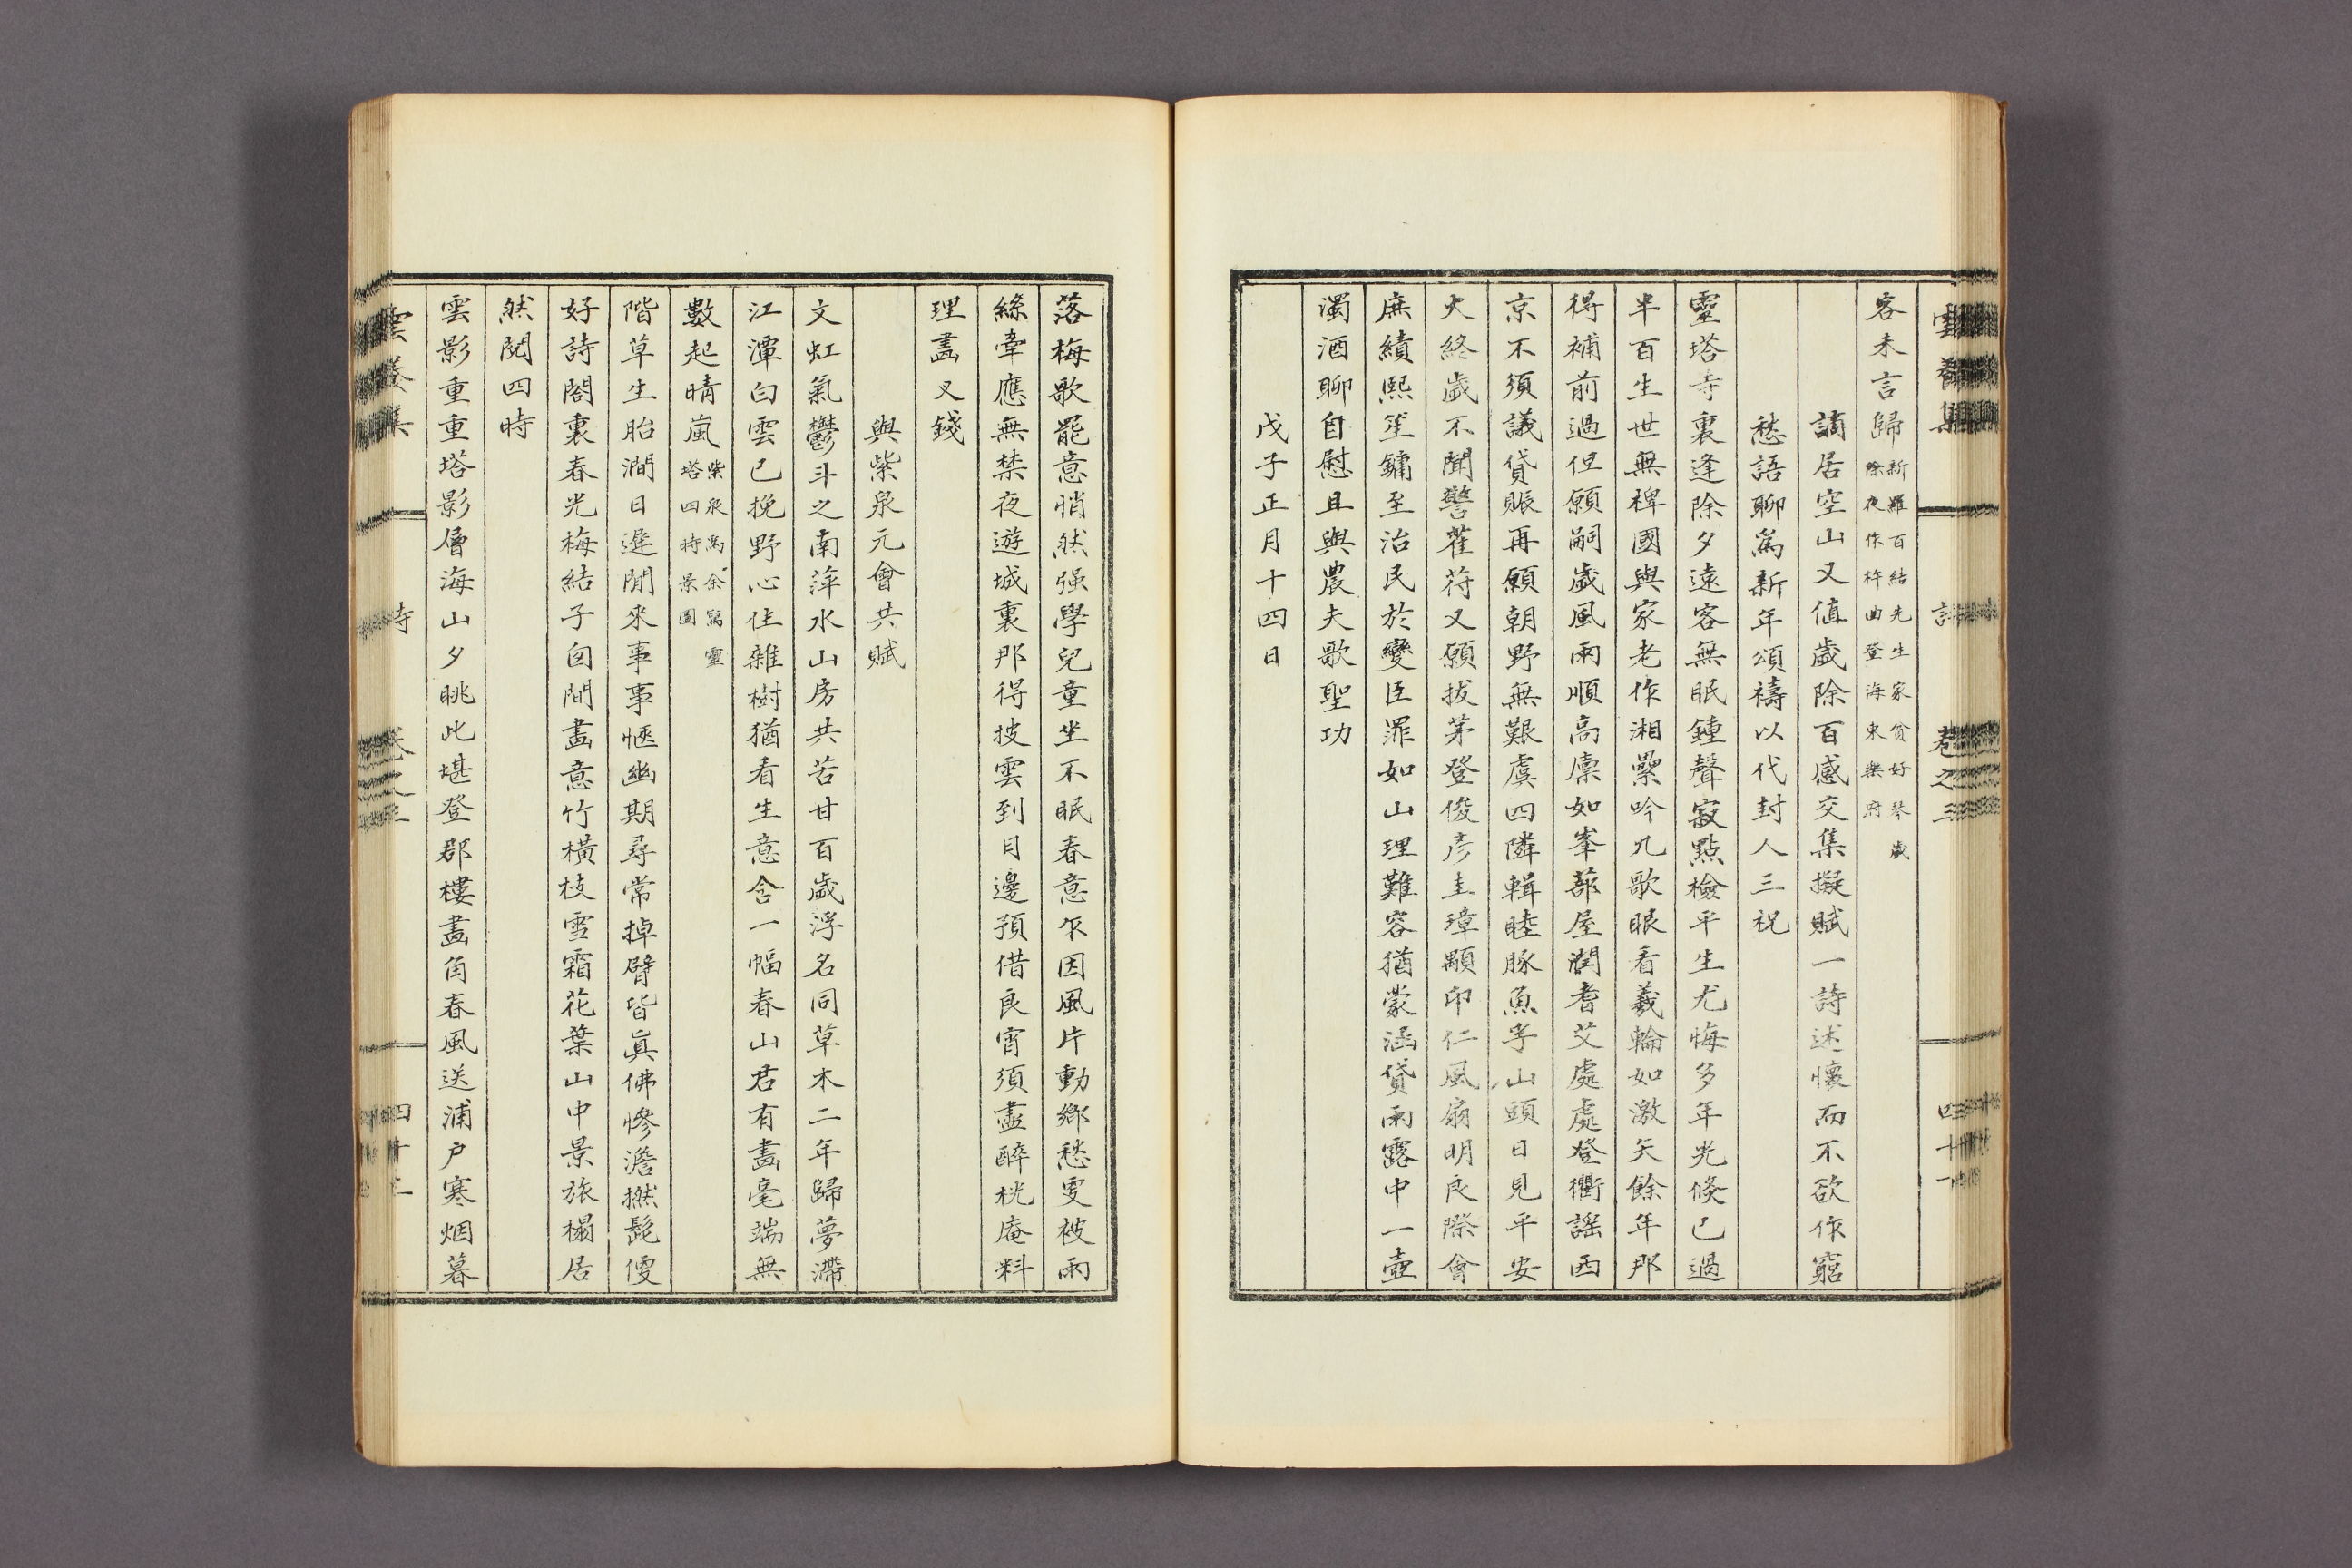 雲養集 詩 卷之三 四十一
客未言歸 新羅百結先生家貧好琴歲
除夜作杵曲登海東樂府
謫居空山又値歲除百感交集擬賦一詩述懷而不欲作窮
愁語聊爲新年頌禱以代封人三祝
靈塔寺裏逢除夕遠客無眠鍾聲寂點檢平生尤悔多年光倐已過
半百生世無裨國與家老作湘纍吟九歌眼看羲輪如激矢餘年那
得補前過但願嗣歲風雨順高廩如峯蔀屋潤耆艾處處登衢謠西
京不須議貸賑再願朝野無艱虞四隣輯睦豚魚孚山頭日見平安
火終歲不聞警萑苻又願拔茅登俊彦圭璋顒卬仁風扇明良際會
庶績熙笙鏞至治民於變臣罪如山理難容猶蒙涵貸雨露中一壺
濁酒聊自慰且與農夫歌聖功
戊子正月十四日
落梅歌罷意悄然强學兒童坐不眠春意乍因風片動鄕愁雯被雨
絲牽應無禁夜遊城裏那得披雲到月邊預借良宵須盡醉桄庵料
理畵叉錢
與紫泉元會共賦
文虹氣鬱斗之南萍水山房共苦甘百歲浮名同草木二年歸夢滯
江潭白雲已挽野心住雜樹猶看生意含一幅春山君有畵毫端無
數起晴嵐 紫泉爲余寫靈
塔四時景圖
階草生胎澗日遲閒來事事愜幽期尋常掉臂皆眞佛慘澹撚髭便
好詩閣裏春光梅結子囱間畵意竹橫枝雪霜花葉山中景旅榻居
然閱四時
雲影重重塔影層海山夕眺此堪登郡樓畵角春風送浦戶寒烟暮
雲養集 詩 卷之三 四十二